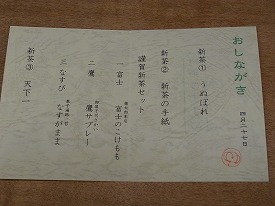 おしながき
四月二十七日
新茶① うぬぼれ
新茶② 新茶の手紙
謹賀新茶セット
一 富士 富士のこけもも
二 鷹 鷹サブレー
三 なすび なすがまま
新茶③ 天下一